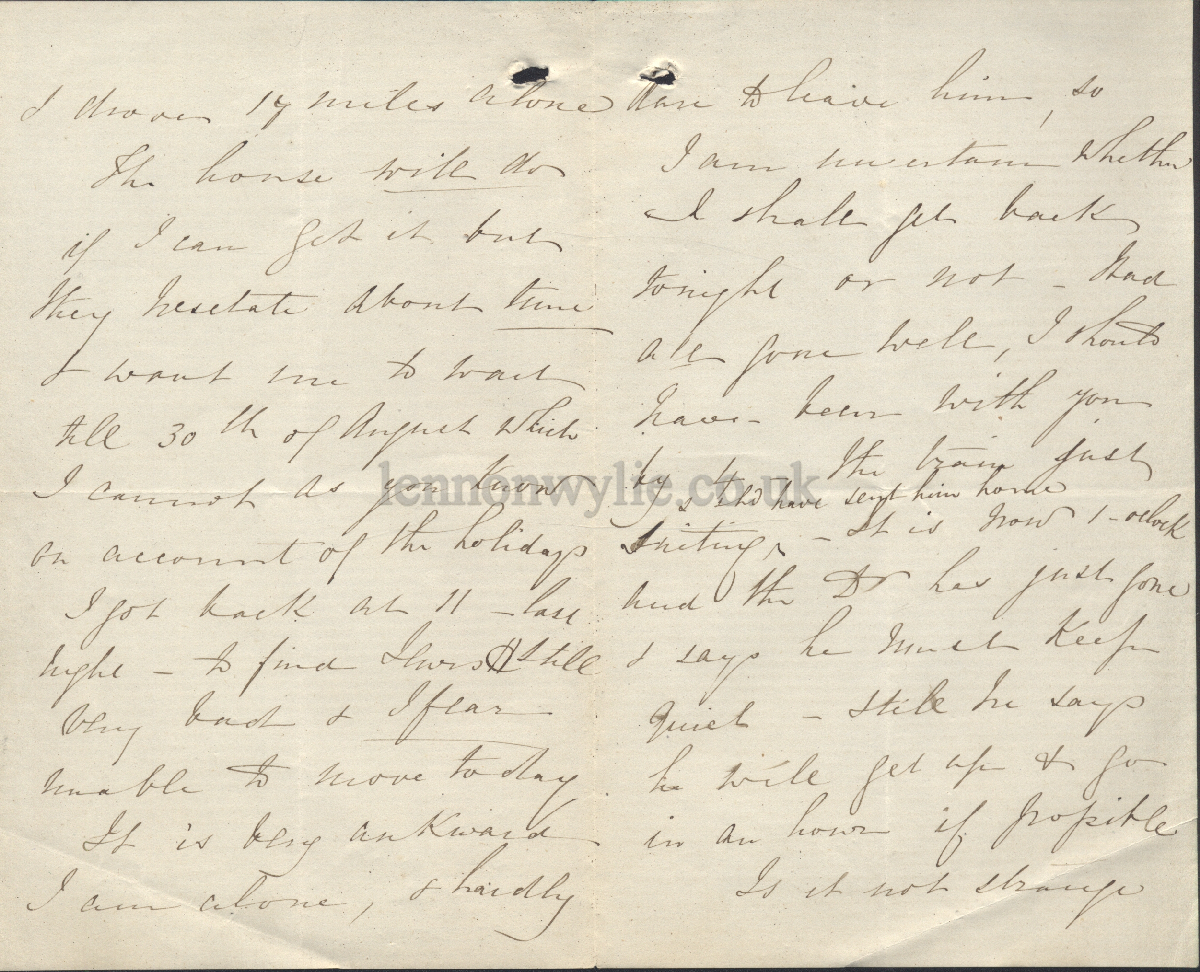 I drove 17 miles alone
The house will do
if I can get it but
they hesitate about time
& want me to wait
till 30th of August which
I cannot as you know
on account of the holidays
I got back at 11 - last
night - to find Lewis still
very bad & I fear
unable to move today
It is very awkward
I am alone, & hardly
dare to leave him, so
I am uncertain whether
I shall get back
tonight or not - Had
all gone well, I should
have been with you
by the train just
shd have sent him home
- It is now 1 - oclock
and the Dr has just gone
& says he must keep
quiet - still he says
he will get up & go
in an hour if possible
Is it not strange
lennonwylie.co.uk